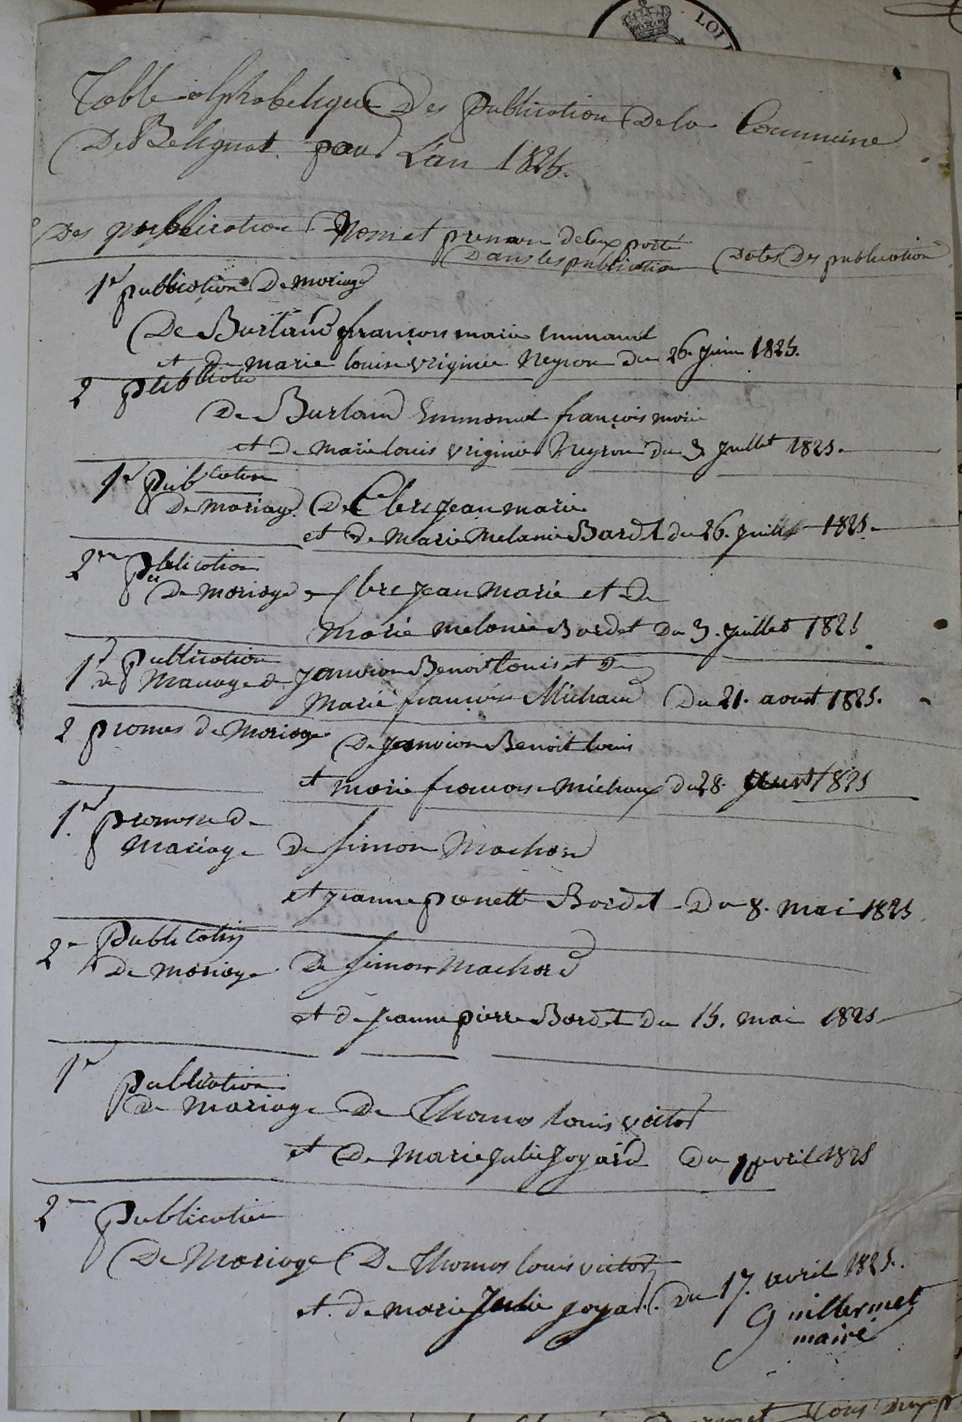 LOI
Table alphabetique Des publication De la Commune
De Belignat pour L'an 1825.
Des publication Nom et prenom de Ceux porté
Dans les publication Dates Des publication
1re publication De mariage
De Burtaud françois marie Emmanuel
et de marie louise virginie Neyron du 26. juin 1825.
2 publicatio
De Burland Emmonuel françois marie
et De marie louis virginie Neyron du 3 juillet 1825.
1re publication
De mariage De Clerc jean marie
et De Marie Melanie Bardet du 26. juillet 1825.
2me publication
De mariage De Clerc jean Marie et De
Marie melanie Bordet Du 3. juillet 1825
1re publication
de Mariage de Janvion Benoit louis et De
Marie françoise Michaud Du 21. aout 1825.
2 promes de Mariage De Janvion Benoit louis
et marie francoise Michaux du 28. aout 1825
1re promese De
Mariage De Simon Machard
et jeanne pierrette Bordet Du 8. mai 1825
2e publication
De mariage De Simon Machard
et de jeanne pierre Bordet Du 15. mai 1825
1re publication
De mariage De Thomas louis victor
et De Marie Julie Joyard Du avril 1825
2me publication
De Mariage De Thomas louis victor
et de marie Julie Joyard. Du 17. avril 1825.
Guillermet
maire